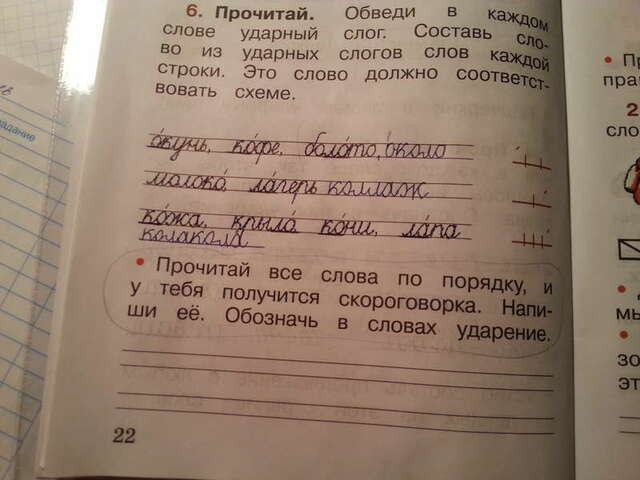 6. Прочитай. Обведи в каждом
слове ударный слог. Составь сло-
во из ударных слогов слов каждой
строки. Это слово должно соответст-
вовать схеме.
о́кунь, ко́фе, боло́то, около
молоко́ ла́герь коллаж
ко́жа, крыло́ ко́ни, ла́па
колакола
• Прочитай все слова по порядку, и
у тебя получится скороговорка. Напи-
ши её. Обозначь в словах ударение.
22
адание
• Пр
пра
2
сло
мы
зо
эт